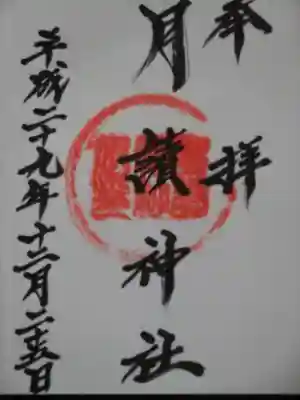 奉拝
月讀神社
平成二十九年十二月二十五日